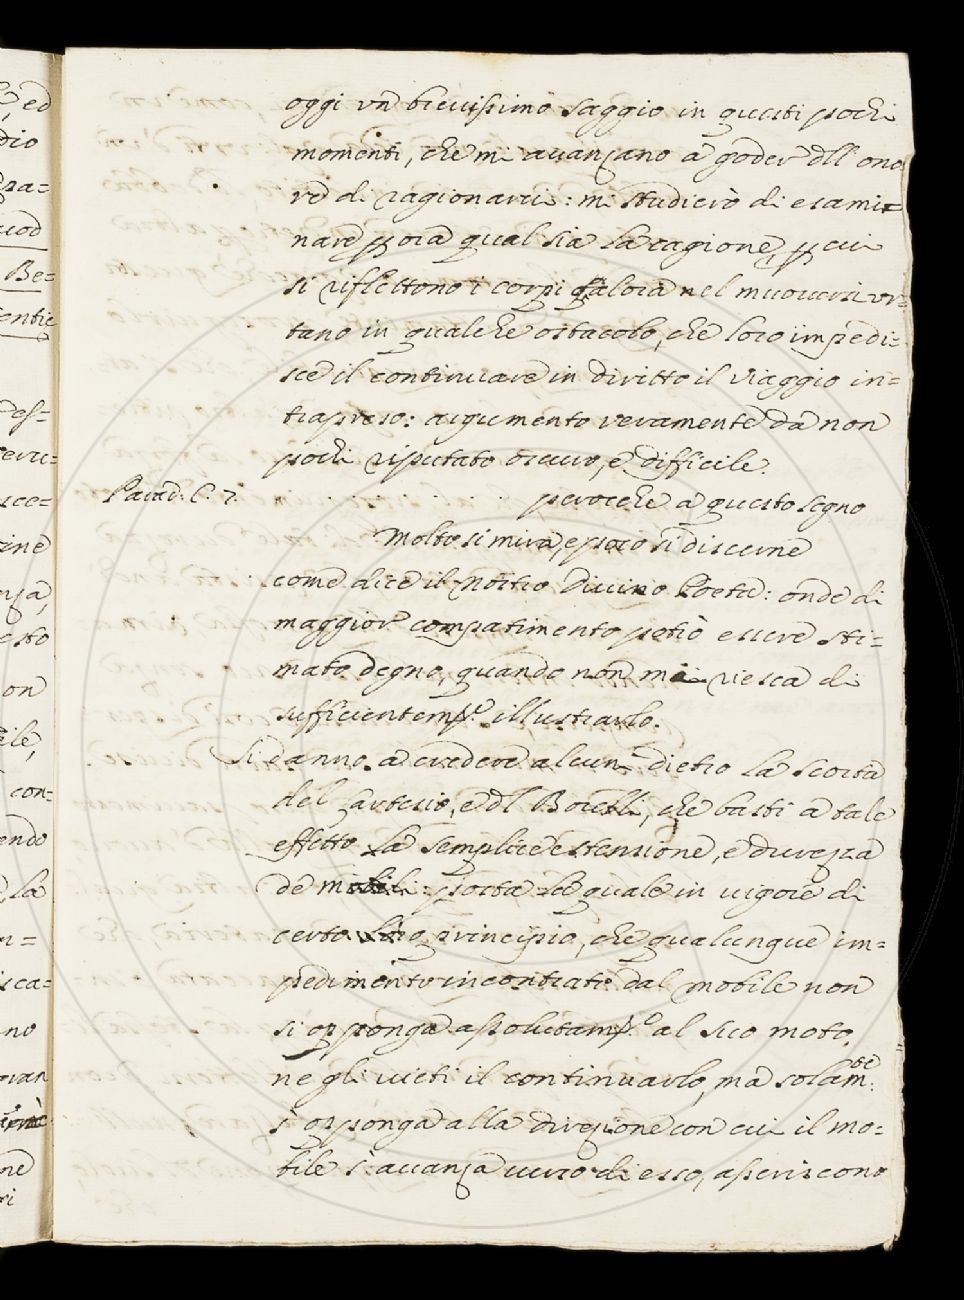 oggi vn breuissimo saggio in questi pochi
momenti, che mi auanzano à goder dll'ono
re di ragionarui: mi studierò di esami=
nare p ora qual sia la ragione, p cui
si riflettono i corpi qalora nel muouersi vr=
tano in qualche ostacolo, che loro impedi=
sce il continuare in diritto il viaggio in=
trapreso: argumento veramente da non
pochi riputato oscuro, e difficile.
Parad. C. 7. . . . . . . . perocche a questo segno
Molto si mira, e poco si discerne
come dice il Nostro Diuino Poeta: onde di
maggior compatimento potrò essere sti=
mato degno, quando non mi riesca di
sufficientemte illustrarlo.
Si danno à credere alcuni dietro la scorta
del Cartesio, e dl Borelli, che basti a tale
effetto la semplice estensione, e durezza
de mobili: posta la quale in vigore di
certo loro principio, che qualunque im=
pedimento incontrato dal mobile non
si opponga assolutamte al suo moto,
ne gli vieti il continuarlo, ma solamte
s'opponga alla direzione con cui il mo=
bile s'auanza verso di esso, asseriscono